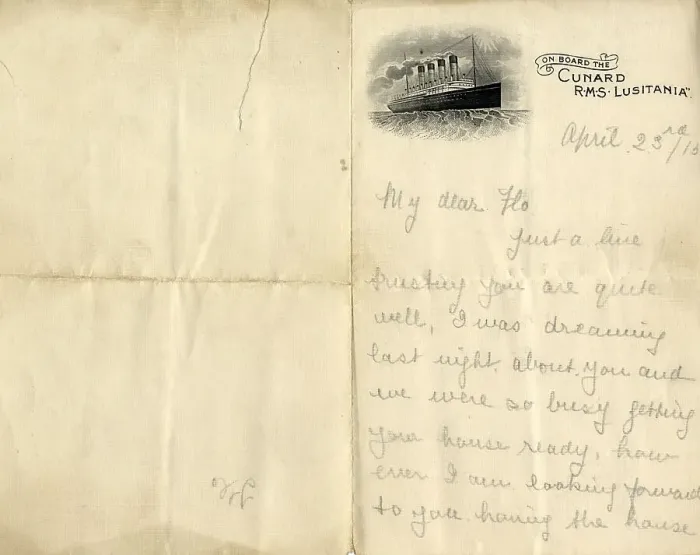 ON BOARD THE
CUNARD
R·M·S· LUSITANIA".
April 23rd/15
My dear Flo
Just a line
trusting you are quite
well, I was dreaming
last night. about. you and
we were so busy getting
your house ready, how
ever I am looking forward
to you. having the house